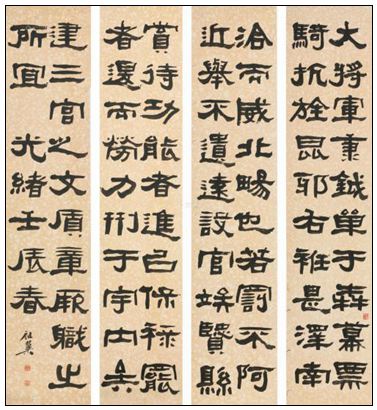 大將軍秉鉞單于犇幕票
騎抗旌昆邪右衽是澤南
洽而威北暢也若罰不阿
近舉不遺遠設官竢賢縣
賞待功能者進㠯保祿罷
者退而勞力刑于宇内矣
建三宮之文質章厥職之
所宜 光緒壬辰春